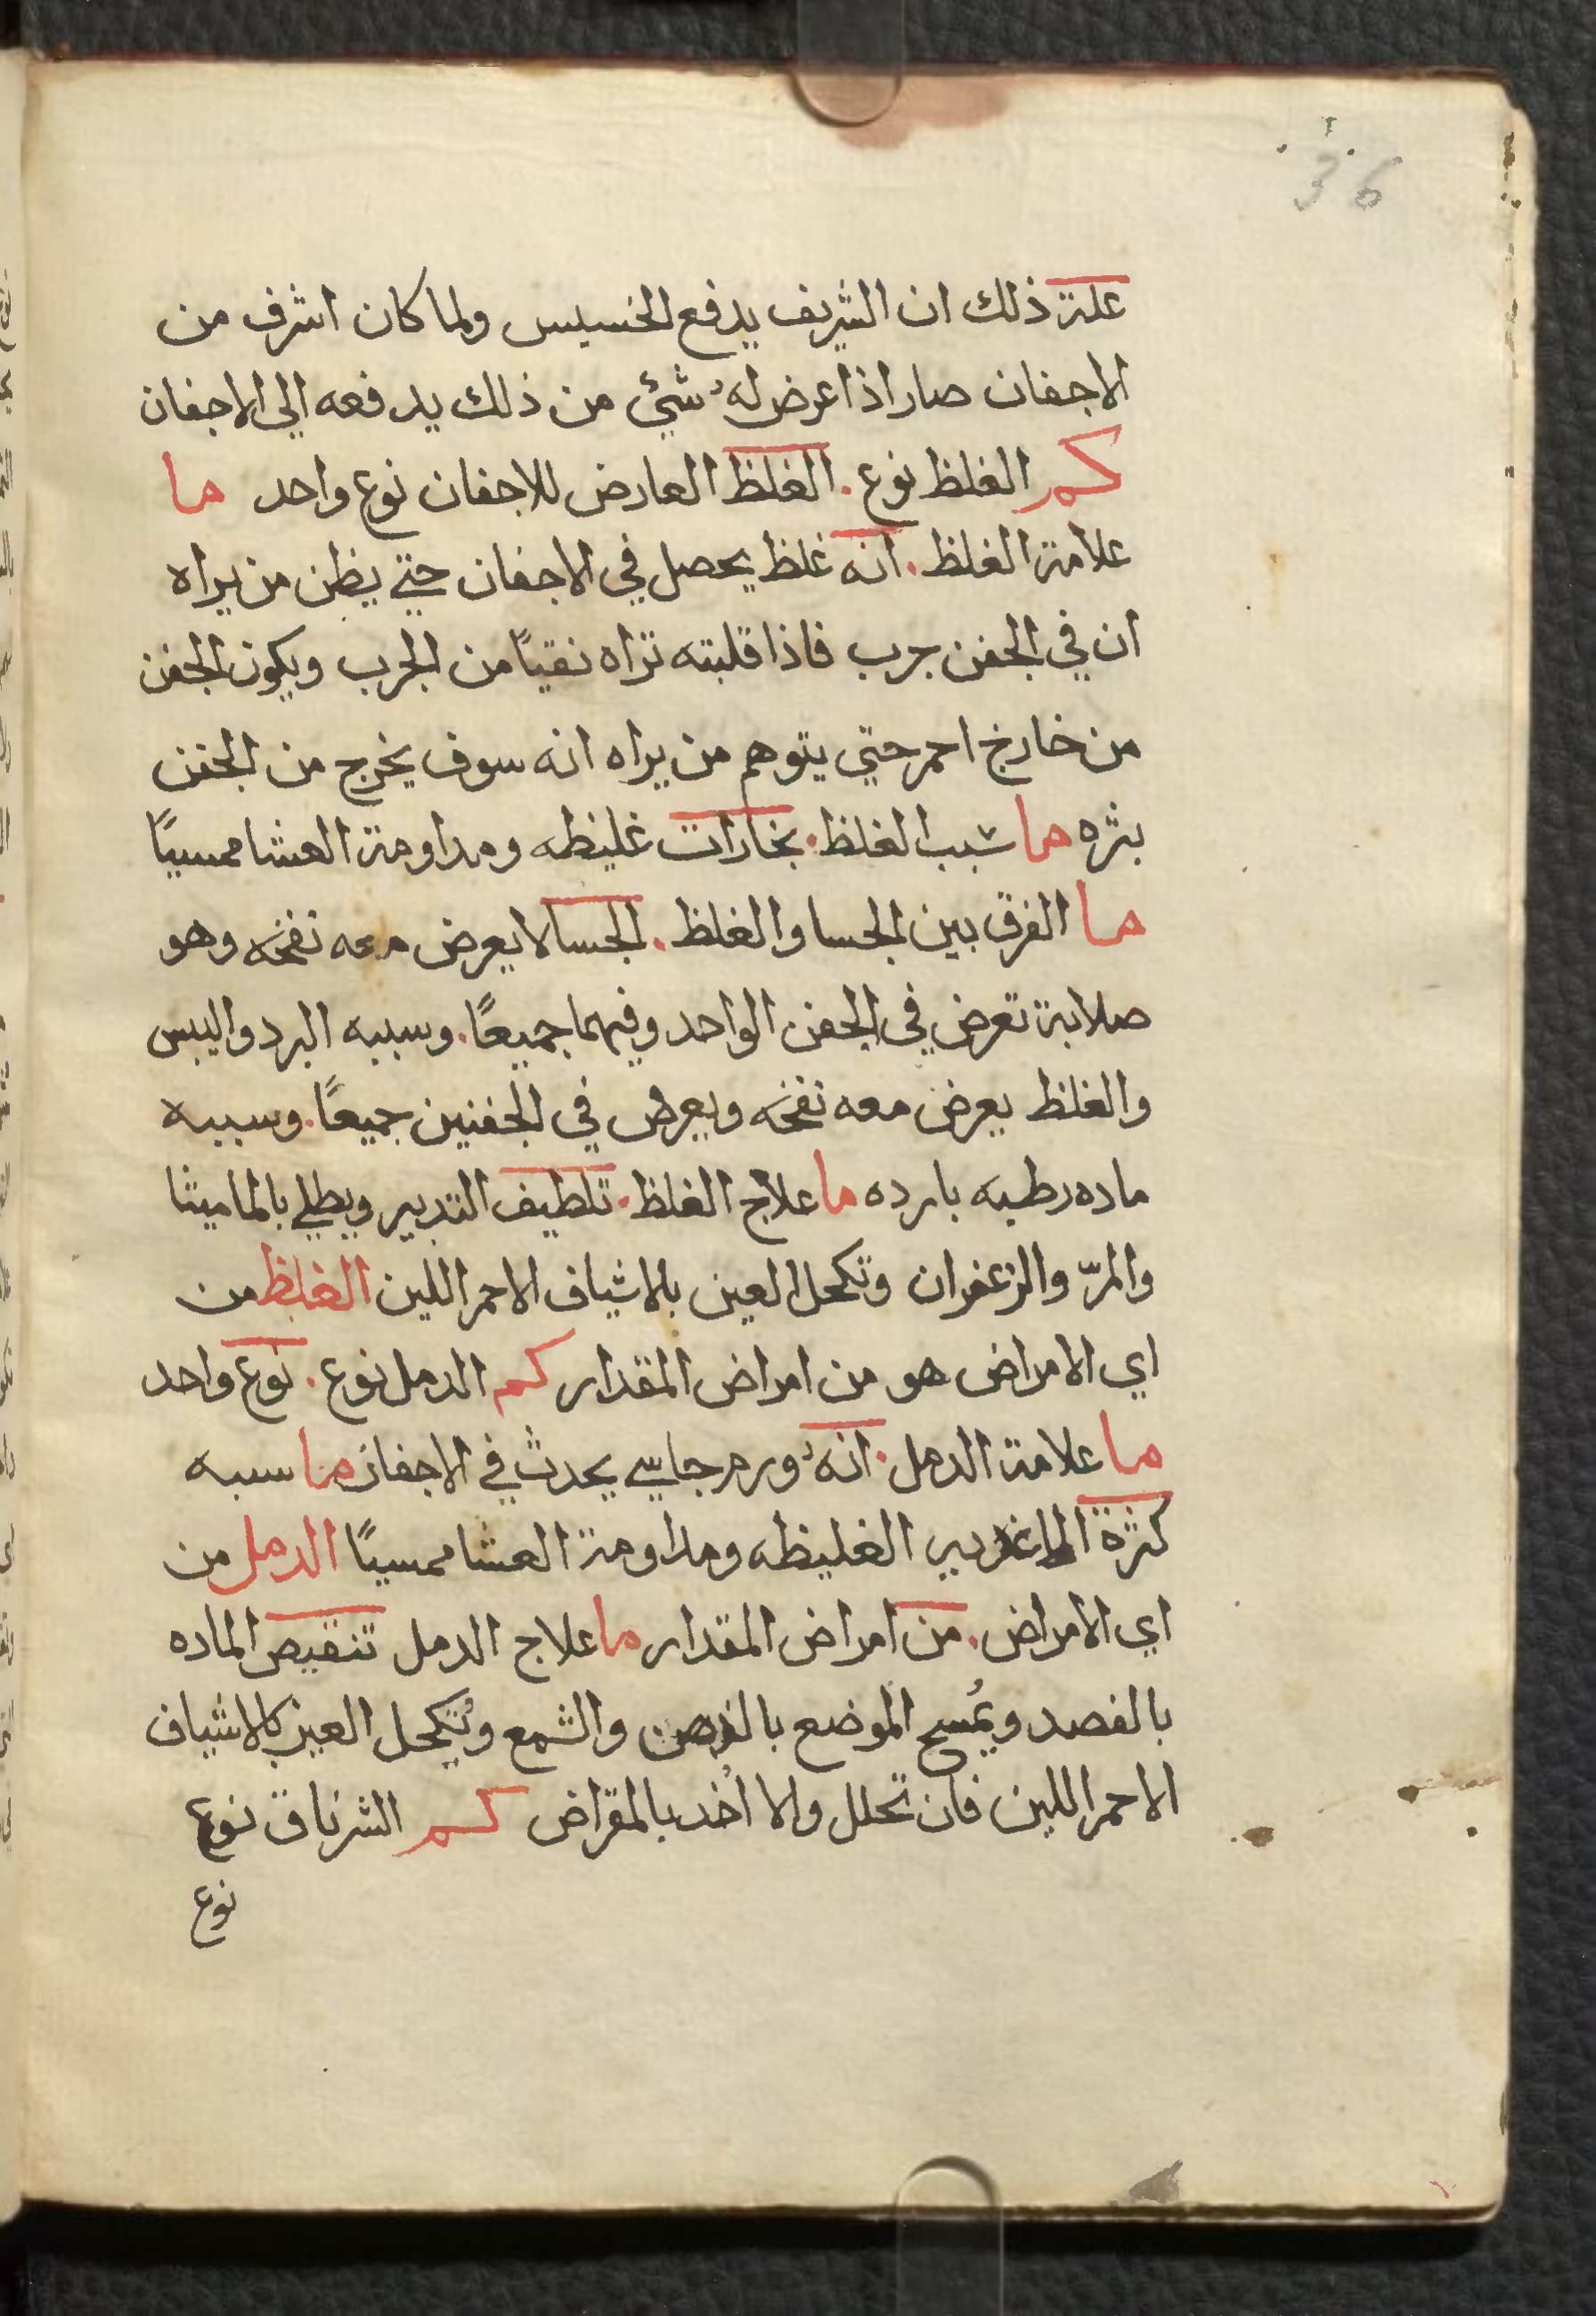 36
علة ذلك ان الشريف يدفع الخسيس ولما كان اشرف من
الاجفان صار اذا عرض له شئ من ذلك يدفعه الي الاجفان
كم الغلظ نوع . الغلظ العارض للاجفان نوع واحد ما
علامة الغلظ . انه غلظ يحصل في الاجفان حتي يظن من يراه
ان في الجفن جرب فاذا قلبته تراه نقيًا من الجرب ويكون الجفن
من خارج احمر حتي يتوهم من يراه انه سوف يخرج من الجفن
بثره ما سبب الغلظ . بخارات غليظه ومداومة العشا ممسيًا
ما الفرق بين الجسا والغلظ . الجسا لا يعرض معه نفخه وهو
صلابة تعرض في الجفن الواحد وفيهما جميعًا . وسببه البرد واليبس
والغلظ يعرض معه نفخه ويعرض في الجفنين جميعًا . وسببه
ماده رطبه بارده ما علاج الغلظ . تلطيف التدبير ويطلي بالماميثا
والمرّ والزعفران وتكحل العين بالاشياف الاحمر اللين الغلظ من
اي الامراض هو من امراض المقدار كم الدمل نوع . نوع واحد
ما علامة الدمل . انهُ ورم جاسي يحدث في الاجفان ما سببه
كثرة الغليظه ومداومة العشا ممسيًا الدمل من
اي الامراض . من امراض المقدار ما علاج الدمل تنقيص الماده
بالفصد ويُمسح الموضع والشمع وتُكحل العين بالاشياف
الاحمر اللين فان تحلل والا اُخد بالمقراض كم الشرناق نوع
نوع